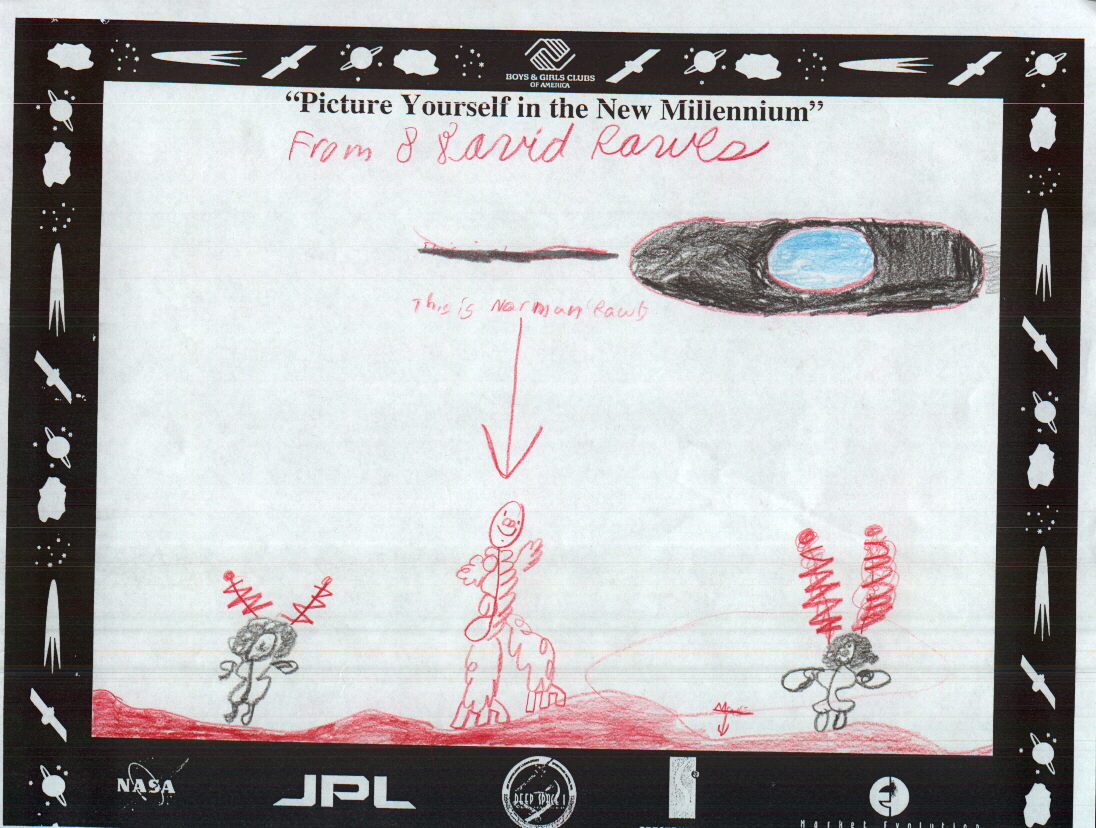 BOYS & GIRLS CLUBS
OF AMERICA
“Picture Yourself in the New Millennium”
From 8 David Rawls
This is Norman Rawls
NASA
JPL
DEEP SPACE 1
Market Evolution